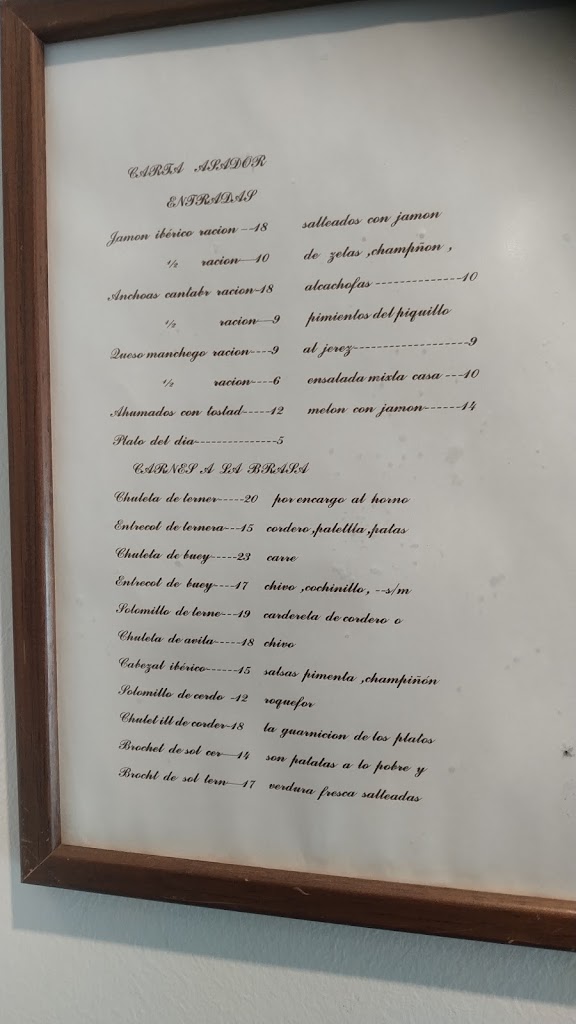 CARTA ASADOR
ENTRADAS
Jamon ibérico racion --18
½ racion---10
Anchoas cantabr racion-18
½ racion---9
Queso manchego racion----9
½ racion----6
Ahumados con tostad-----12
Plato del dia--------------5
salteados con jamon
de zetas ,champiñon ,
alcachofas --------------10
pimientos del piquillo
al jerez-------------------9
ensalada mixta casa ---10
melon con jamon------14
CARNES A LA BRASA
Chuleta de terner-----20
Entrecot de ternera---15
Chuleta de buey-----23
Entrecot de buey----17
Solomillo de terne---19
Chuleta de avila-----18
Cabezal ibérico------15
Solomillo de cerdo -12
Chulet ill de corder-18
Brochet de sol cer---14
Brocht de sol tern---17
por encargo al horno
cordero,paletlla,patas
carre
chivo ,cochinillo, --s/m
cardereta de cordero o
chivo
salsas pimenta ,champiñón
roquefor
la guarnicion de los platos
son patatas a lo pobre y
verdura fresca salteadas